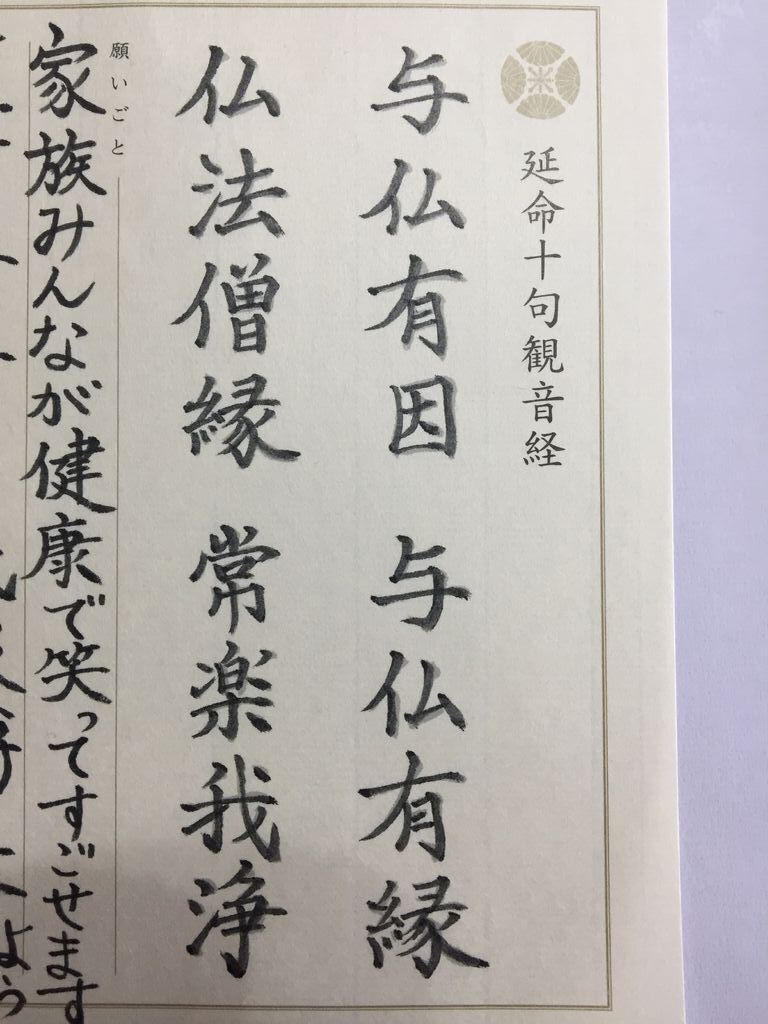 延命十句観音経
与仏有因 与仏有縁
仏法僧縁 常楽我浄
願いごと
家族みんなが健康で笑ってすごせます
よう